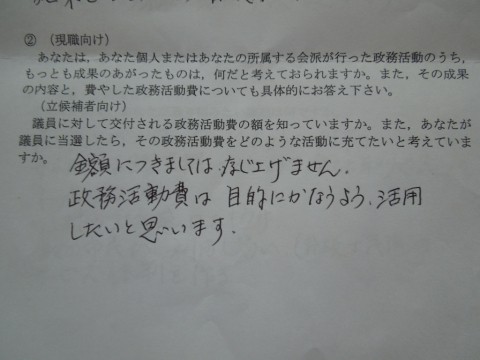 ② （現職向け）
あなたは，あなた個人またはあなたの所属する会派が行った政務活動のうち，
もっとも成果のあがったものは，何だと考えておられますか。また，その成果
の内容と，費やした政務活動費についても具体的にお答え下さい。
（立候補者向け）
議員に対して交付される政務活動費の額を知っていますか。また，あなたが
議員に当選したら，その政務活動費をどのような活動に充てたいと考えていま
すか。
金額につきましては、存じ上げません。
政務活動費は 目的にかなうよう、活用
したいと思います。